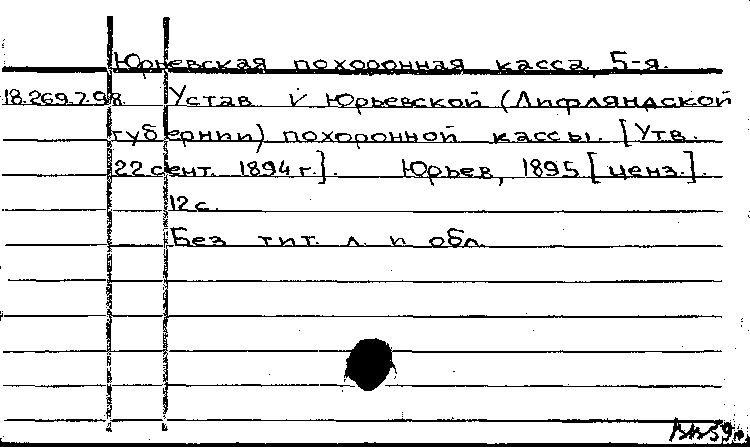 Юрьевская похоронная касса, 5-я.
18.269.7.98. Устав V Юрьевской (Лифляндской
губернии) похоронной кассы. [Утв.
22 сент. 1894 г.]. Юрьев, 1895 [ценз.].
12 с.
Без тит. л. и обл.